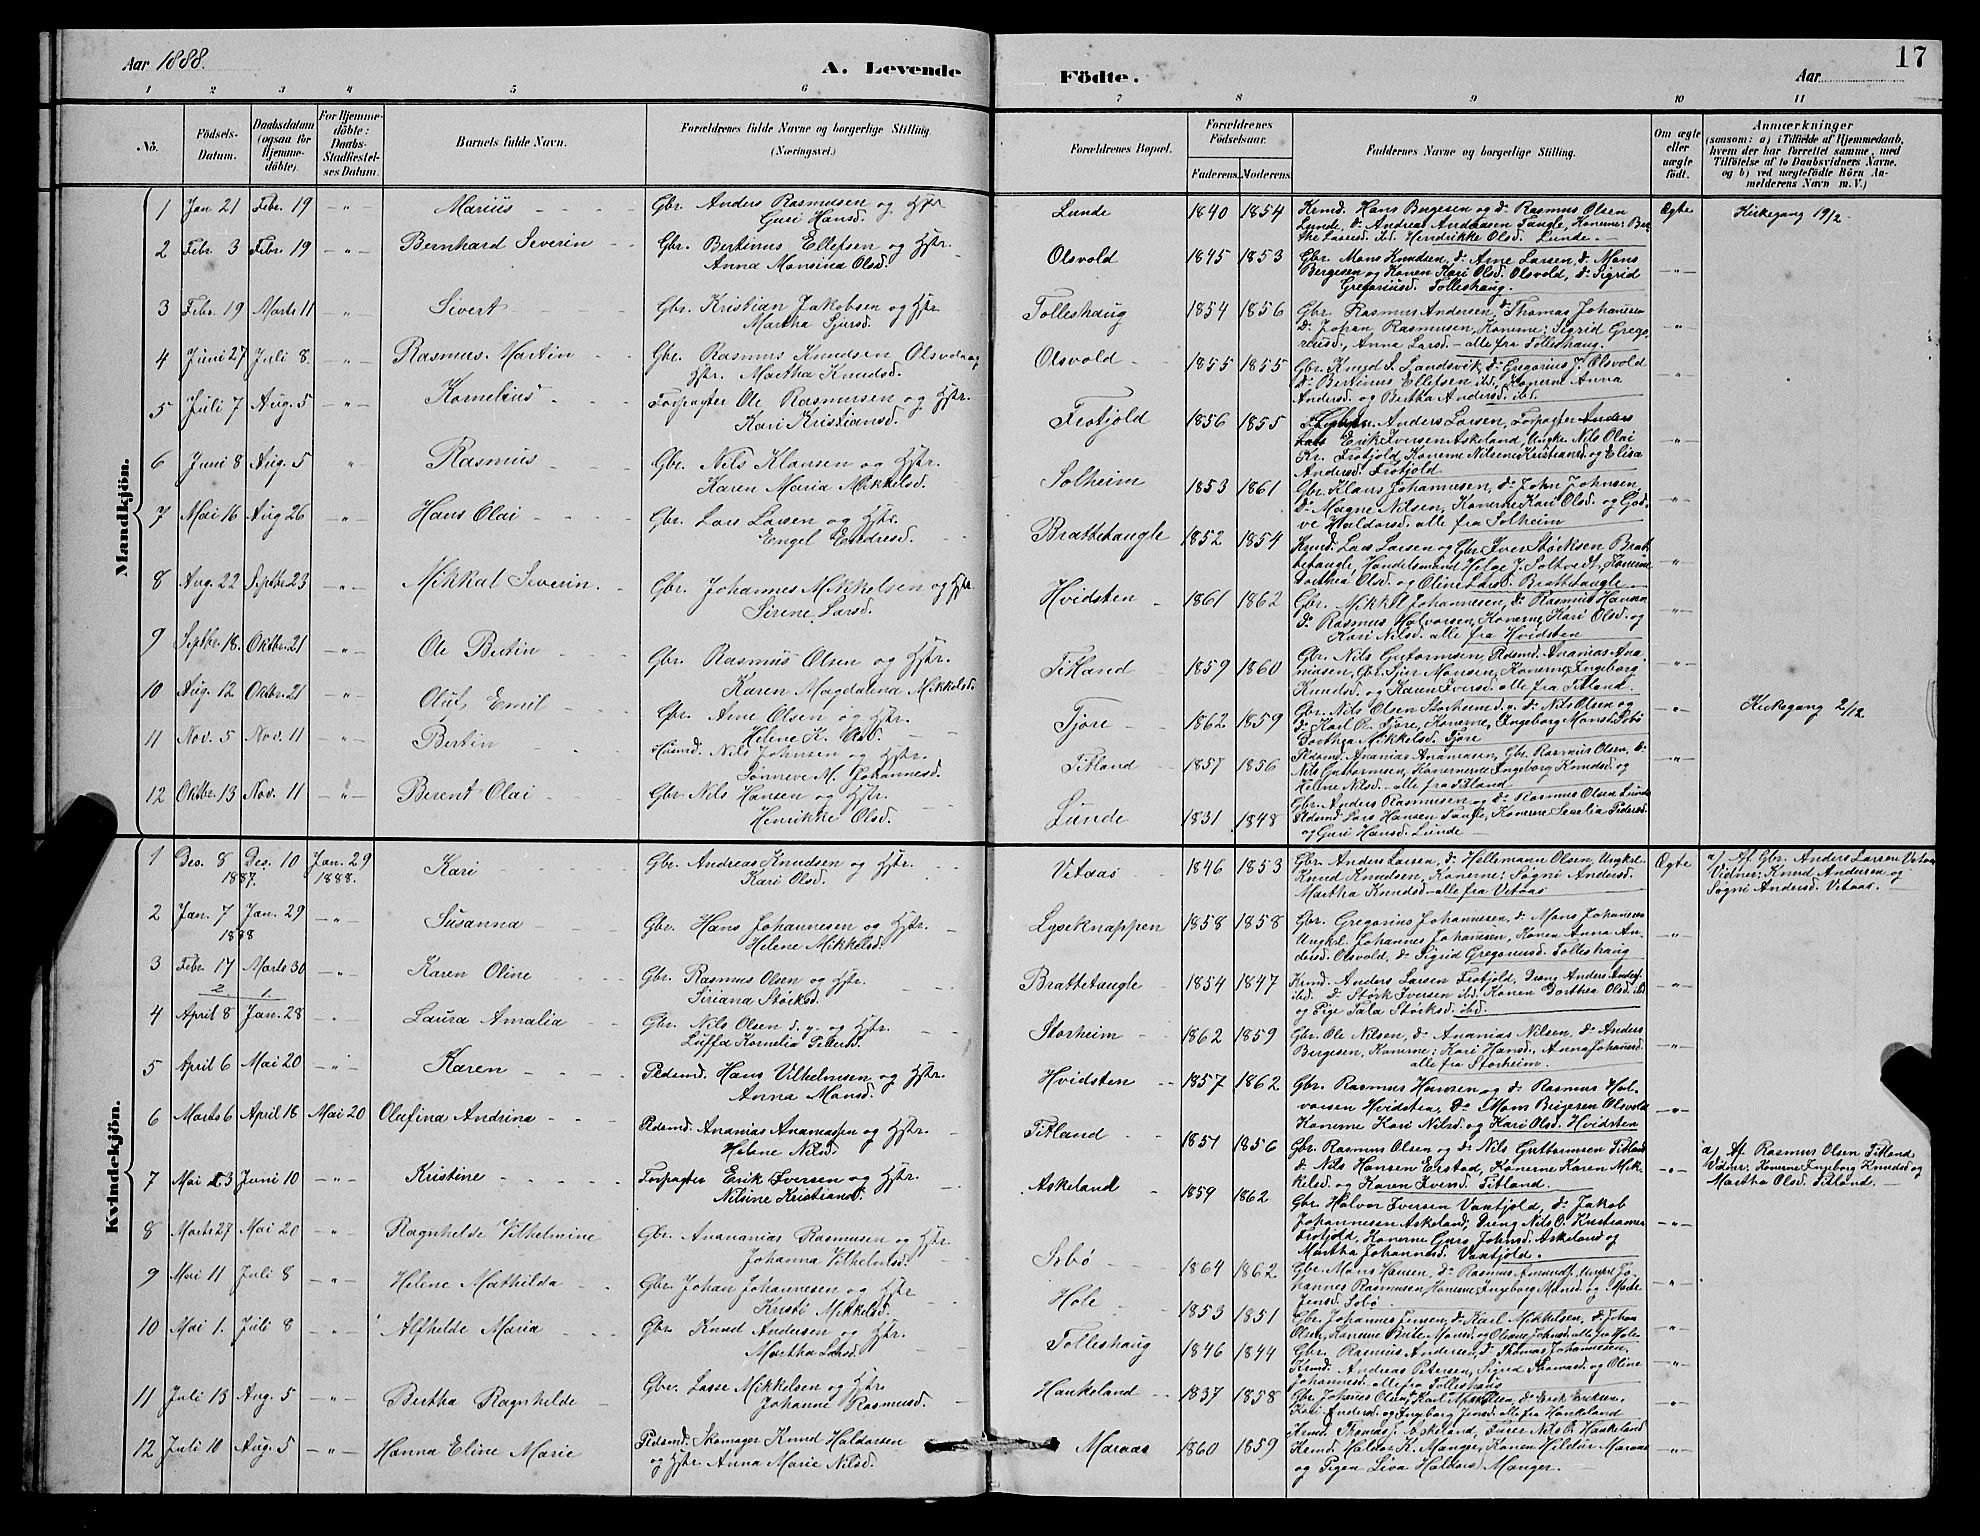 Aar 1888.
A. Levende Födte.
Aar
17
1 2 3 4 5 6 7 8 9 10 11
No.
Födsels-Datum.
Daabsdatum (ogsaa for Hjemmedöbte).
For Hjemmedöbte: Daabs-Stadfæstelses Datum.
Barnets fulde Navn.
Forældrenes fulde Navne og borgerlige Stilling. (Næringsvei.)
Forældrenes Bopæl.
Forældrenes Födselsaar.
Faderens. Moderens.
Faddernes Navne og borgerlige Stilling.
Om ægte eller uægte födt.
Anmærkninger
(saasom: a) i Tilfælde af Hjemmedaab, hvem der har forrettet samme, med Tilföielse af to Daabsvidners Navne. og b) ved uægtefödte Börn Anmelderens Navn m. V.)
Mandkjön.
1 Jan 21 Febr. 19 -"- Marius Gbr. Anders Rasmusen og Hstr Guri Hansd. Lunde 1840 1854 Krmd. Hans Bergesen og do Rasmus Olsen Lunde, do Andreas Andersen Taugle, Konerne: Berthe Lassesd. ibd. Hendrikke Olsd. Lunde. Ægte Kirkegang 19/2
2 Febr. 3 Febr. 19 -"- Bernhard Severin Gbr. Bertinus Ellefsen og Hstr. Anna Monsina Olsd. Olsvold 1845 1853 Gbr. Mons Knudsen, do. Arne Larsen, do. Mons Bergesen og Konen Kari Olsd. Olsvold, do Sigrid Gregoriusd. Tolleshaug. -"-
3 Febr. 19 Marts 11 -"- Sivert Gbr. Kristian Jakobsen og Hstr. Martha Sjursd. Tolleshaug 1854 1856 Gbr. Rasmus Andersen, do Thomas Johannesen do. Johan Rasmusen, Konerne: Sigrid Gregoriusd., Anna Larsd. - alle fra Tolleshaug. -"-
4 Juni 27 Juli 8. -"- Rasmus Martin Gbr. Rasmus Knudsen Olsvold og Hstr. Martha Knudsd. Olsvold 1855 1855 Gbr. Knud S. Landsvik, do Gregorius J. Olsvold do Bertinus Ellefsen ibd., Konerne Anna Andersd. og Bertha Andersd. ibd. -"-
5 Juli 7 Aug. 5 -"- Kornelius Forpagter Ole Rasmusen og Hstr. Kari Kristiansd. Frotjold 1856 1855 Anders Larsen, Forpagter Erik Iversen Askeland, Ungkr. Nils Olai Kr. Frotjold, Konerne Nilsine Kristiansd. og Elisa Andersd. Frotjold -"-
6 Juni 8 Aug. 5 " Rasmus Gbr. Nils Klausen og Hstr. Karen Maria Mikkelsd. Solheim 1853 1861 Gbr. Klaus Johannesen, do John Johnsen, do Magne Nilsen, Konerne Kari Olsd. og Haldorsd. alle fra Solheim -"-
7 Mai 16 Aug 26 -"- Hans Olai Gbr. Lars Larsen og Hstr. Engel Endresd. Brattetaugle 1852 1854 Krmd. Lars Larsen og Gbr. Iver Størksen Brattetaugle, Handelsmand Helge J. Soltvedt, Konerne Dorthea Olsd. og Oline Larsd. Brattetaugle -"-
8 Aug. 22 Septbr. 23 -"- Mikkal Severin. Gbr. Johannes Mikkelsen og Hstr Sirene Larsd. Hvidsten 1861 1862 Gbr. Mikkel Johannesen, do. Rasmus Hansen do. Rasmus Halvorsen, Konerne Kari Olsd. og Kari Nilsd. alle fra Hvidsten -"-
9 Septbr. 18. Oktbr. 21 -"- Ole Bertin Gbr. Rasmus Olsen og Hstr. Karen Magdalena Mikkelsd. Titland 1859 1860 Gbr. Nils Guttormsen, Pldsmd. Ananias Ananiasen, Gbr. Sjur Monsen, Konerne Ingeborg Knudsd. og Karen Iversd. alle fra Titland. -"-
10 Aug. 12 Oktbr. 21 -"- Oluf Emil Gbr. Arne Olsen og Hstr. Helene K. Olsd. Fjøre 1862 1859 Gbr. Nils Olsen Storheim d. y. do Nils Olsen og do Karl R. Fjøre, Konerne, Ingeborg Monsd. Sebø Dorthea Mikkelsd. Fjøre -"- Kirkegang 2/12
11 Nov. 5 Nov. 11 -"- Bertin Husmd. Nils Johnsen og Hstr. Sønneve M. Johannesd. Titland 1857 1856 Pldsmd. Ananias Ananiasen, Gbr. Rasmus Olsen, do Nils Guttormsen, Konerne Ingeborg Knudsd. og Helene Nilsd. alle fra Titland -"-
12 Oktbr. 13 Nov. 11 -"- Berent Olai Gbr. Nils Hansen og Hstr. Henrikke Olsd. Lunde 1831 1848 Gbr. Anders Rasmusen og do Rasmus Olsen Lunde Pldsmd. Lars Hansen Taugle, Konerne Severine Pedersd. og Guri Hansd. Lunde
Kvindekjön.
1 Des. 8 1887. Des. 10 Jan. 29 1888. Kari Gbr. Andreas Knudsen og Hstr. Kari Olsd. Vetaas 1846 1853 Gbr. Anders Larsen, do. Hellemann Olsen, Ungkrl. Knud Knudsen, Konerne: Sogni Andersd. Martha Knudsd. alle fra Vetaas Ægte a) Af Gbr. Anders Larsen Vetaas Vidner: Knud Andersen og Sogni Andersd. Vetaas.
2 Jan. 7 1888 Jan. 29 -"- Susanna Gbr. Hans Johannesen og Hstr. Helene Mikkelsd. Lyseknappen 1858 1858 Gbr. Gregorius Johannesen, do. Mons Johannesen Ungkl. Johannes Johannesen, Konen Anna Andersd. Olsvold, do Sigrid Gregoriusd. Tolleshaug -"-
3 Febr. 17 Marts 30 -"- Karen Oline Gbr. Rasmus Olsen og Hstr. Siriana Størksd. Brattetaugle 1854 1847 Krmd. Anders Larsen Frotjold, Dreng Anders Andersd. ibd. do Størk Iversen ibd. Konen Dorthea Olsd. ibd. og Pige Tala Størksd. ibd. -"-
4 April 8 Jan. 28 Laura Amalia Gbr. Nils Olsen d. y. og Hstr. Luffa Kornelia Petersd. Storheim 1862 1859 Gbr. Ole Nilsen, do Ananias Nilsen, do Anders Bergesen, Konerne: Kari Hansd., Anna Johannesd. alle fra Storheim. -"-
5 April 6 Mai 20 -"- Karen Pldsmd. Hans Vilhelmsen og Hstr. Anna Monsd. Hvidsten 1857 1862 Gbr. Rasmus Hansen og do. Rasmus Halvorsen Hvidsten, do Mons Bergesen Olsvold Konerne Kari Nilsd. og Kari Olsd. Hvidsten -"-
6 Marts 6 April 18 Mai 20 Olafina Andrina Pldsmd. Ananias Ananiassen og Hstr. Helene Nilsd. Titland 1851 1856 Gbr. Rasmus Olsen og do Nils Guttormsen Titland do Nils Hansen Erstad, Konerne Karen Mikkelsd. og Karen Iversd. Titland. -"- a) Af Rasmus Olsen Titland Vidner: Konerne Ingeborg Knudsd. og Martha Olsd. Titland.
7 Mai 13 Juni 10 -"- Kristine Forpagter Erik Iversen og Hstr. Nilsine Kristiansd. Askeland 1859 1862 Gbr Halvor Iversen Vaxtjold, do Jakob Johannesen Askeland, Dreng Nils O. Kristiansen Frotjold, Konerne Guro Johnsd. Askeland og Martha Johannesd. Vaxtjold. -"-
8 Marts 27 Mai 20 -"- Ragnhelde Vilhelmine Gbr. Anananias Rasmusen og Hstr. Johanna Vilhelmsd. Sebø 1864 1862 Gbr. Mons Hansen, do Rasmus Amunds., Ungkrl Johannes Rasmusen, Konerne Ingeborg Monsd. og Marte Jensd. Sebø -"-
9 Mai 11 Juli 8 -"- Helene Mathilda Gbr. Johan Johannesen og Hstr Kristi Mikkelsd. Hole 1853 1851 Gbr. Johannes Jensen, do. Karl Mikkelsen, do Johan Olsen, Konerne Brite Monsd. og Oliane Johnsd. alle fra Hole. -"-
10 Mai 1. Juli 8 -"- Alfhelde Maria Gbr. Knud Andersen og Hstr. Martha Larsd. Tolleshaug 1846 1844 Gbr. Rasmus Andersen, do Thomas Johannesen, Krmd. Andreas Petersen, Sigrid Thomasd. og Oline Johannesd. alle fra Tolleshaug -"-
11 Juli 13 Aug. 5 -"- Bertha Ragnhelde Gbr. Lasse Mikkelsen og Hstr Johanne Rasmusd. Haukeland 1837 1858 Gbr. Johanes Olsen, Karl Mikkelsen, do Erik Eriksen, Kari Andersd. og Ingeborg Jensd. alle fra Haukeland -"-
12 Juli 10 Aug. 5 -"- Hanna Eline Marie Pldsmd. Skomager Knud Haldorsen og Hstr. Anna Marie Nilsd. Maraas 1860 1859 Krmd. Thomas J. Askeland, Furer Nils O. Haukeland Krmd. Haldor K. Manger, Konen Hildur Maraas og Pigen Siva Haldorsd. Manger. -"-